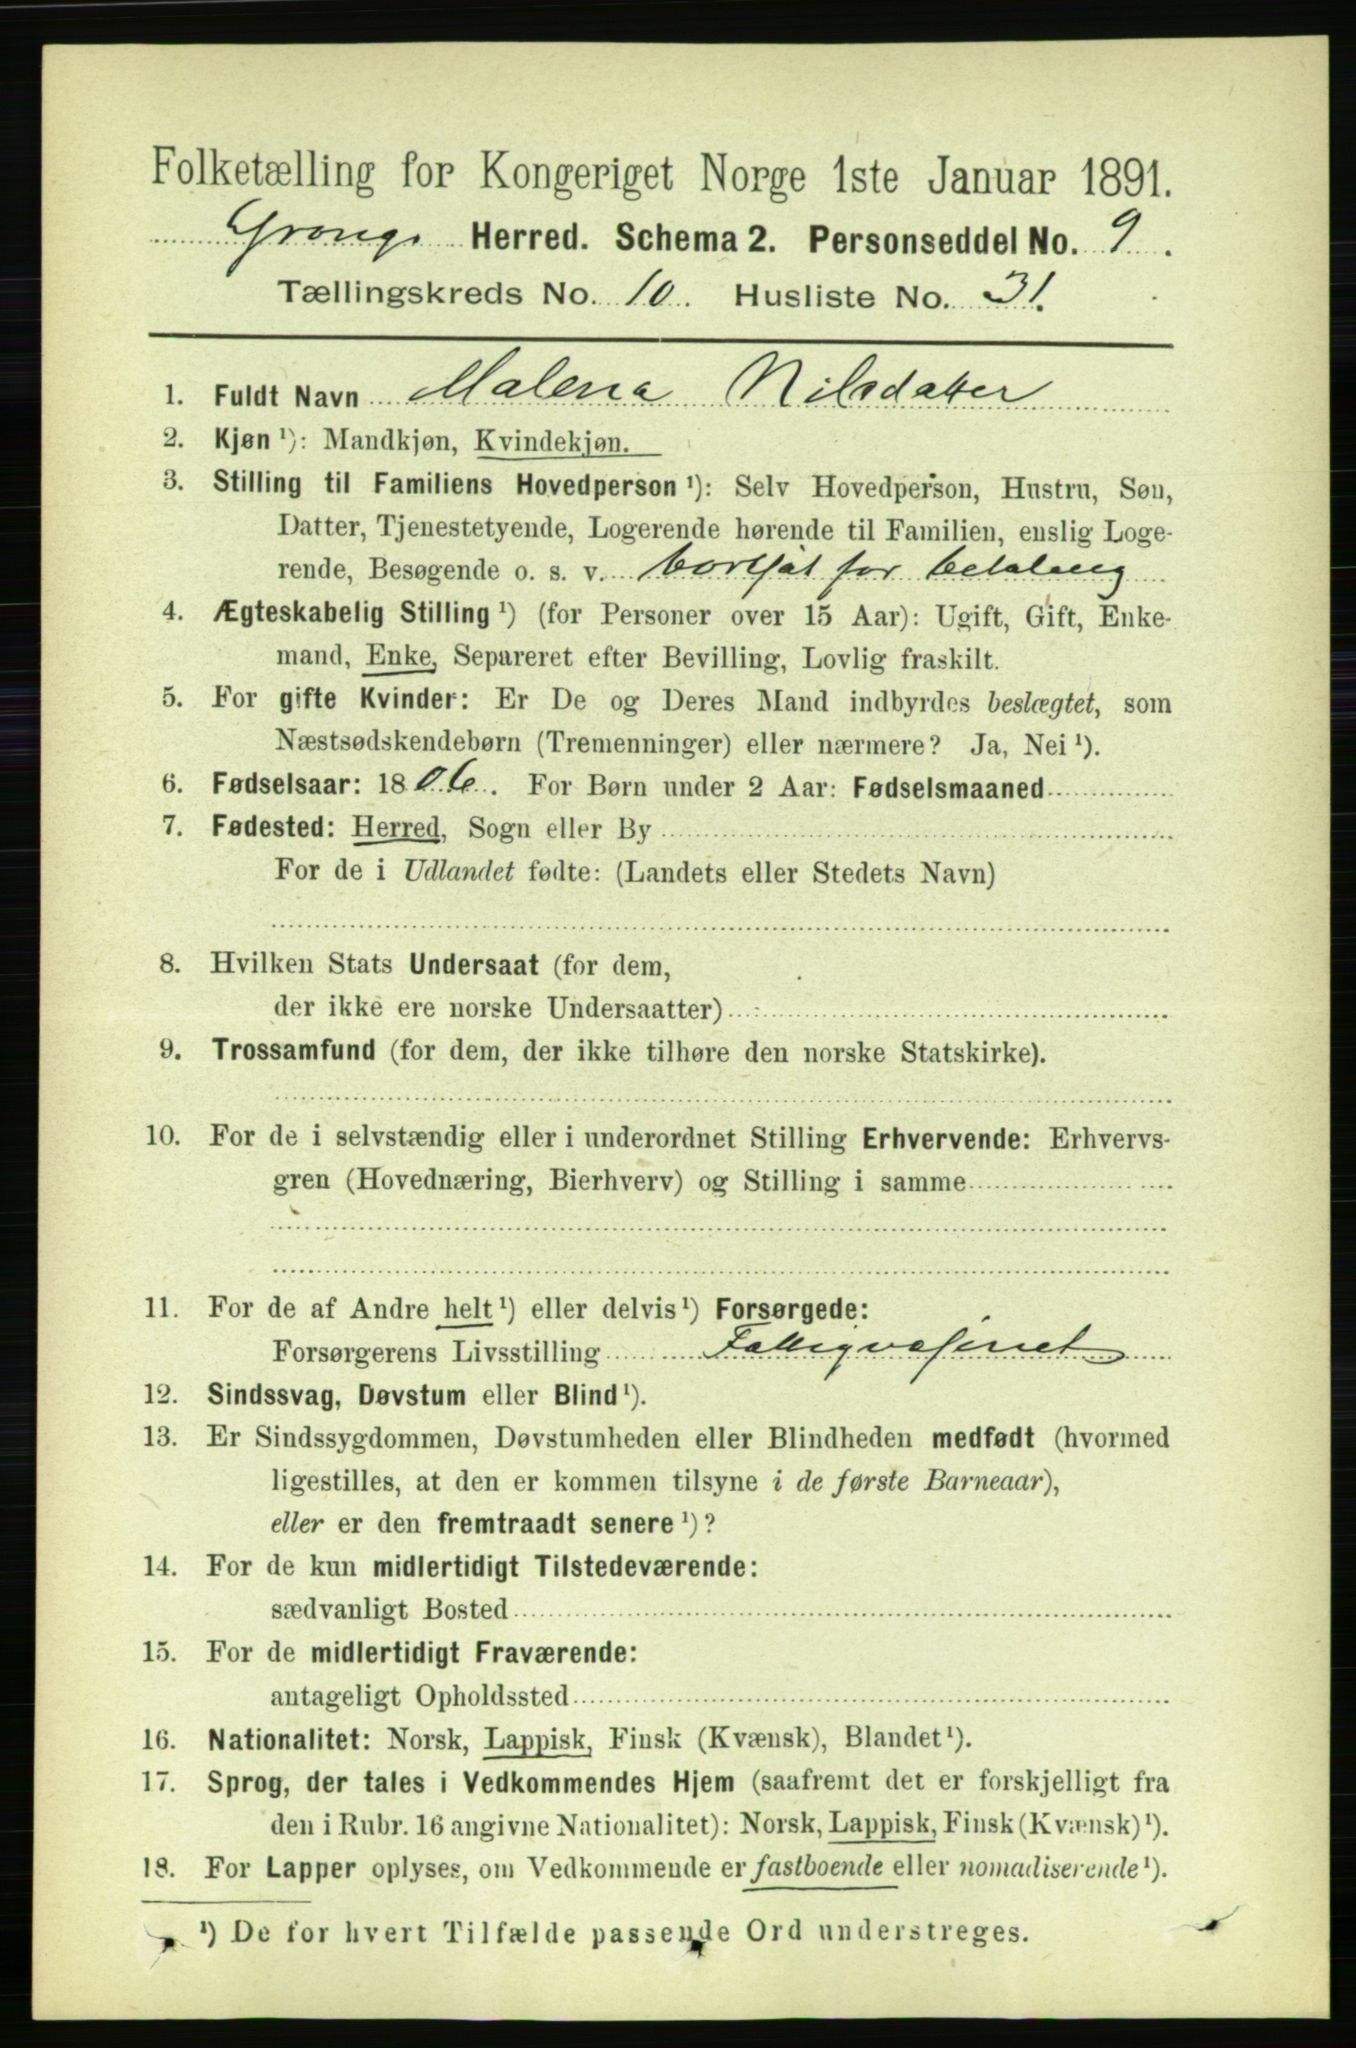 Folketælling for Kongeriget Norge 1ste Januar 1891.
Grongs Herred. Schema 2. Personseddel No. 9.
Tællingskreds No. 10. Husliste No. 31.
1. Fuldt Navn Malena Nilsdatter
2. Kjøn ¹): Mandkjøn, Kvindekjøn.
3. Stilling til Familiens Hovedperson ¹): Selv Hovedperson, Hustru, Søn,
Datter, Tjenestetyende, Logerende hørende til Familien, enslig Loge-
rende, Besøgende o. s. v. bortsat for betaling
4. Ægteskabelig Stilling ¹) (for Personer over 15 Aar): Ugift, Gift, Enke-
mand, Enke, Separeret efter Bevilling, Lovlig fraskilt.
5. For gifte Kvinder: Er De og Deres Mand indbyrdes beslægtet, som
Næstsødskendebørn (Tremenninger) eller nærmere? Ja, Nei ¹).
6. Fødselsaar: 1806. For Børn under 2 Aar: Fødselsmaaned
7. Fødested: Herred, Sogn eller By
For de i Udlandet fødte: (Landets eller Stedets Navn)
8. Hvilken Stats Undersaat (for dem,
der ikke ere norske Undersaatter)
9. Trossamfund (for dem, der ikke tilhøre den norske Statskirke).
10. For de i selvstændig eller i underordnet Stilling Erhvervende: Erhvervs-
gren (Hovednæring, Bierhverv) og Stilling i samme
11. For de af Andre helt ¹) eller delvis ¹) Forsørgede:
Forsørgerens Livsstilling Fattigvæsenet
12. Sindssvag, Døvstum eller Blind ¹).
13. Er Sindssygdommen, Døvstumheden eller Blindheden medfødt (hvormed
ligestilles, at den er kommen tilsyne i de første Barneaar),
eller er den fremtraadt senere ¹)?
14. For de kun midlertidigt Tilstedeværende:
sædvanligt Bosted
15. For de midlertidigt Fraværende:
antageligt Opholdssted
16. Nationalitet: Norsk, Lappisk, Finsk (Kvænsk), Blandet ¹).
17. Sprog, der tales i Vedkommendes Hjem (saafremt det er forskjelligt fra
den i Rubr. 16 angivne Nationalitet): Norsk, Lappisk, Finsk (Kvænsk) ¹).
18. For Lapper oplyses, om Vedkommende er fastboende eller nomadiserende ¹).
¹) De for hvert Tilfælde passende Ord understreges.